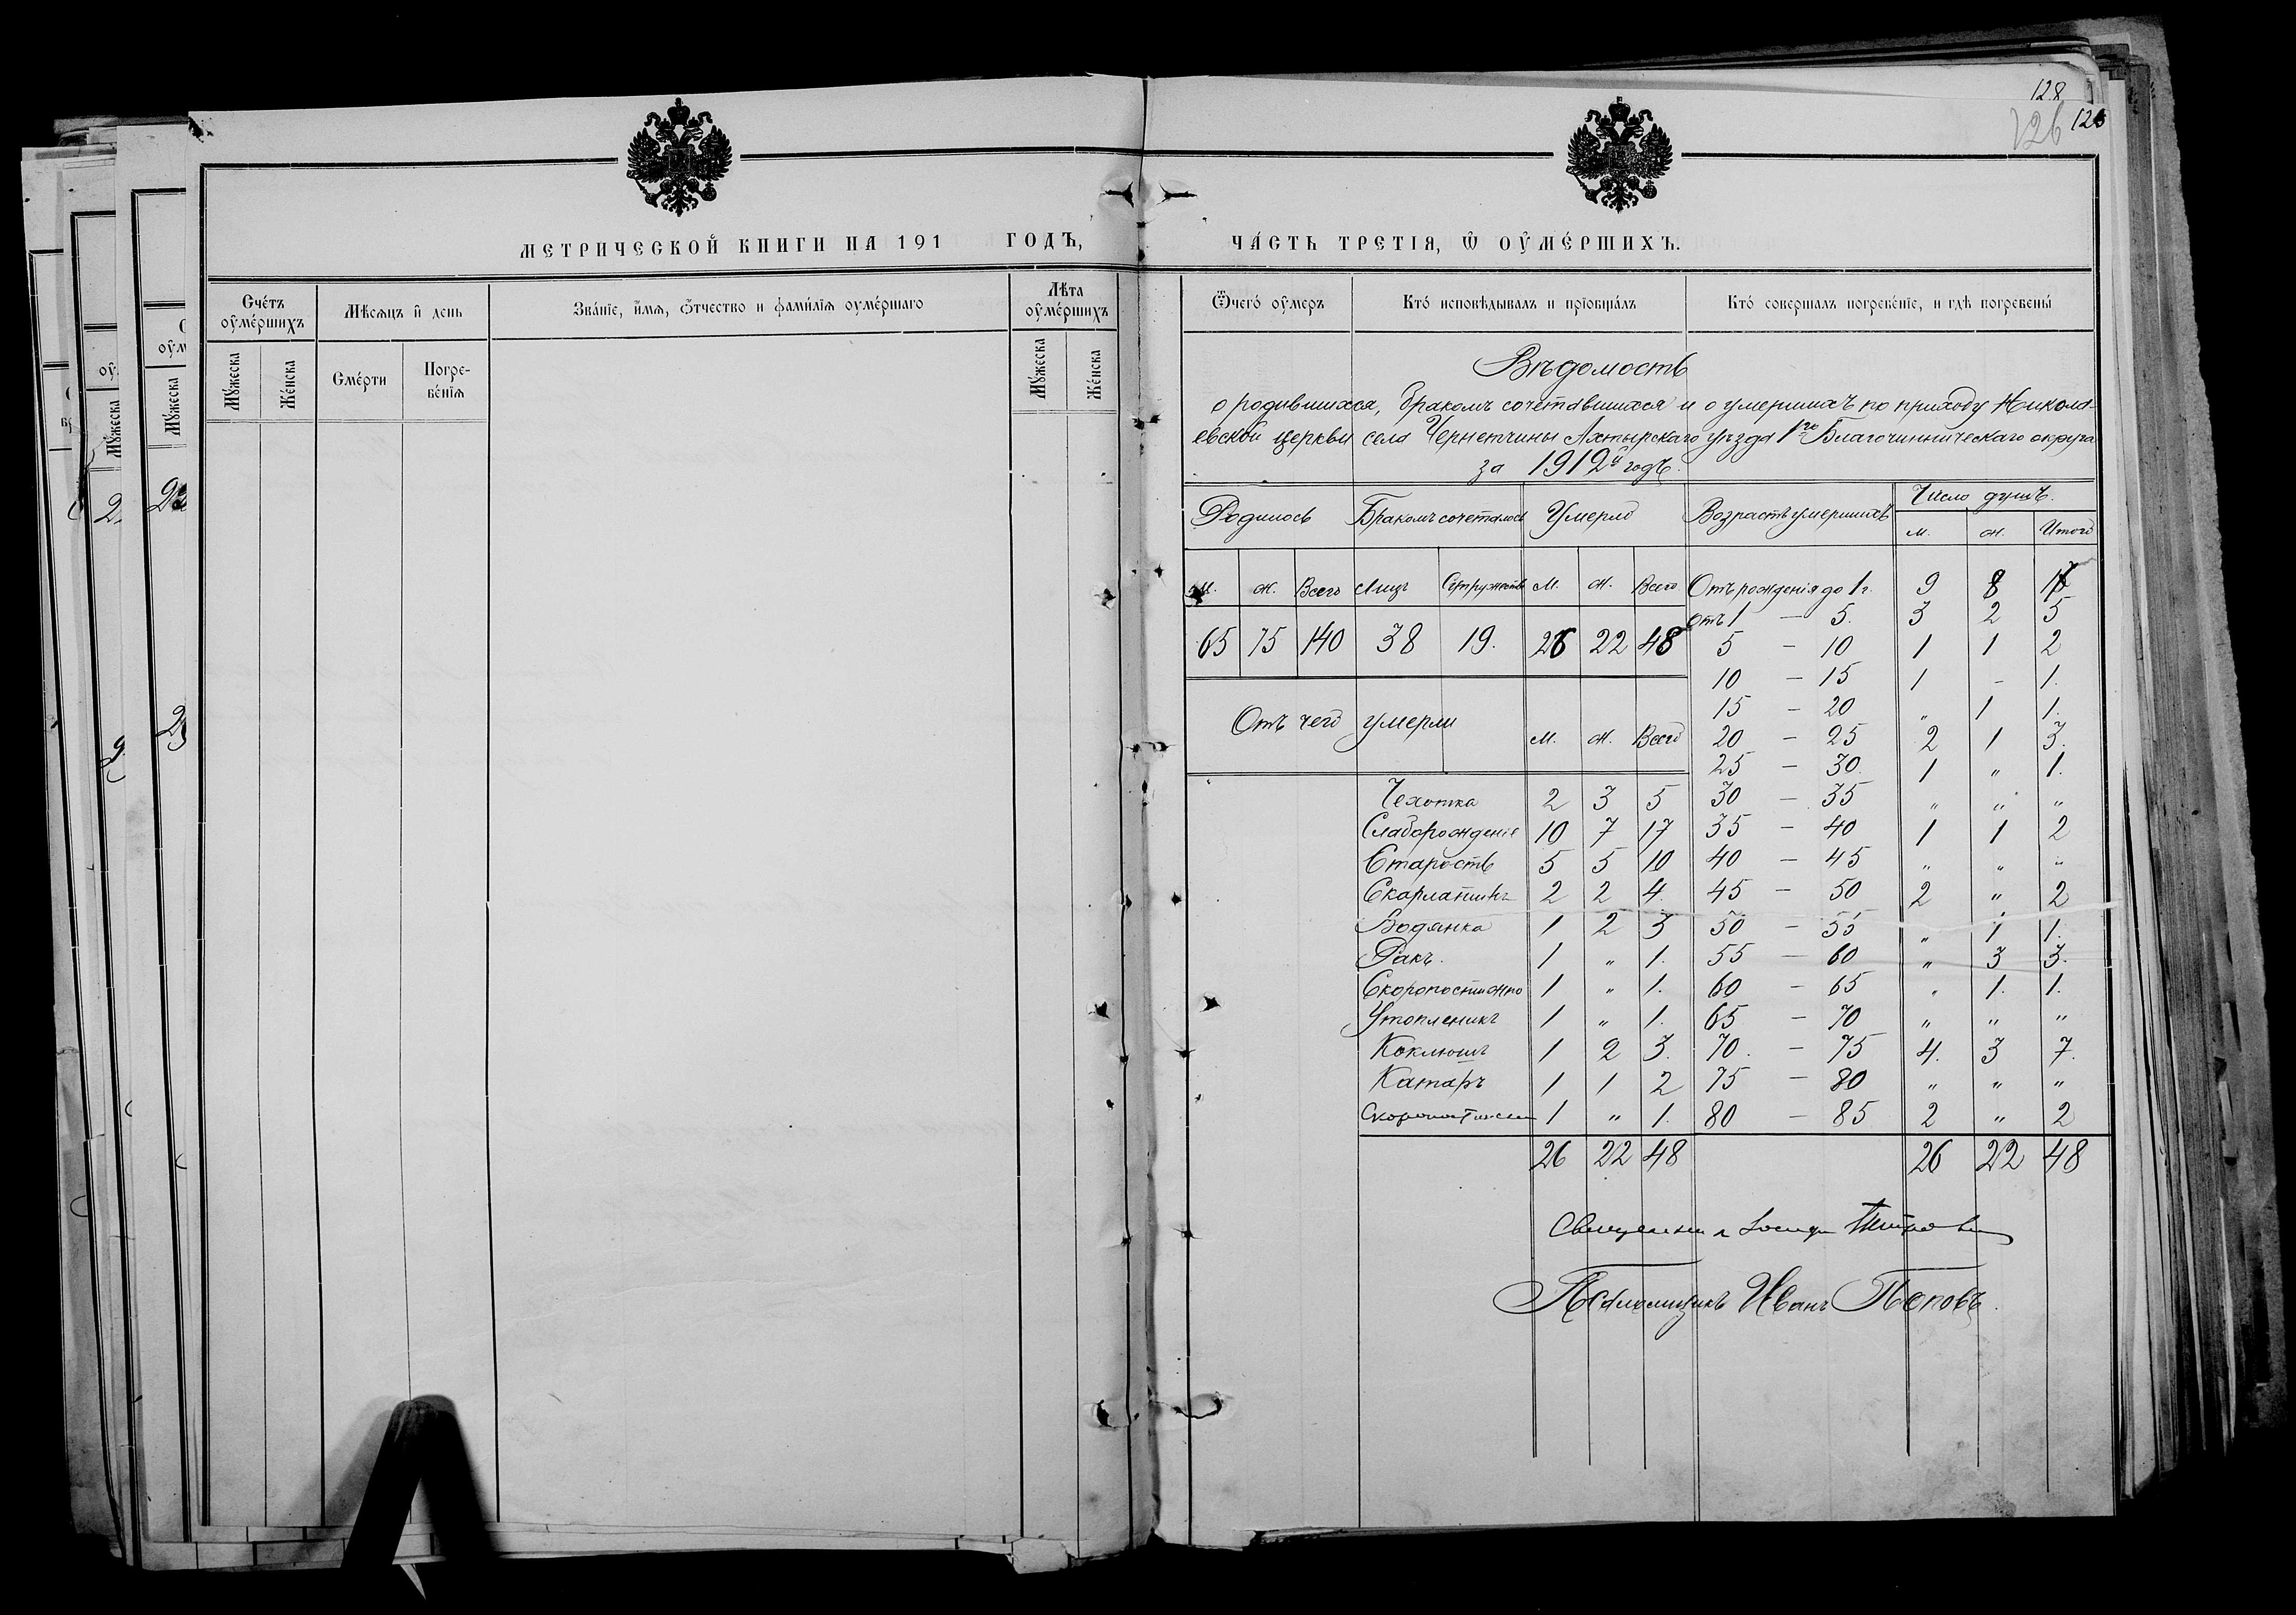 128
126
126
МЕТРИЧЕСКОЙ КНИГИ НА 191 ГОДЪ,
Счéтъ оумéршихъ
Мѣсяцъ и день
Звáнїе, и́мя, ѻ҆́тчество и фами́лїя оумéршаго
Лѣта оумéршихъ
Мꙋ́жеска
Жéнска
Смéрти
Погребéнїя
Мꙋ́жеска
Жéнска
ЧÁСТЬ ТРЕТІЯ, Ѡ ОУМÉРШИХЪ.
Ѿчегó оумеръ
Ктó исповѣдывалъ и прїобщáлъ
Ктó совершалъ погребéнїе, и гдѣ погребены́
Вѣдомость
о родившихся, бракомъ сочетавшихся и о умершихъ по приходу Никола-
евской церкви села Чернетчины Ахтырскаго уѣзда 1го Благочинническаго округа
за 1912й годъ.
Родилось Бракомъ сочеталось Умерло Возрастъ умершихъ Число душъ.
м. ж. Итого
м. ж. Всего Лицъ Супружествъ м. ж. Всего
65 75 140 38 19. 26 22 48
Отъ рожденія до 1 г. 9 8 17
отъ 1 — 5. 3 2 5
5 — 10 1 1 2
10 — 15 1 - 1.
15 — 20 „ 1 1.
20 — 25 2 1 3.
25 — 30. 1 „ 1.
30 — 35 „ „ „
35 — 40 1 1 2
40 — 45 „ „ „
45 — 50 2 „ 2
50 — 55 „ 1 1.
55 — 60 „ 3 3.
60 — 65 „ 1. 1.
65 — 70 „ „ „
70. — 75 4. 3 7.
75 — 80 „ „ „
80 — 85 2 „ 2
26 22 48
Отъ чего умерли м. ж. Всего
Чехотка 2 3 5
Слаборожденія 10 7 17
Старость 5 5 10
Скарлатинъ 2 2 4.
Водянка 1 2 3
Ракъ. 1 „ 1.
Скоропостижно 1 „ 1.
Утопленикъ 1 „ 1.
Коклюшъ 1 2 3.
Катаръ 1 1 2
1 „ 1.
26 22 48
Священникъ
Псаломщикъ Иванъ Поповъ.